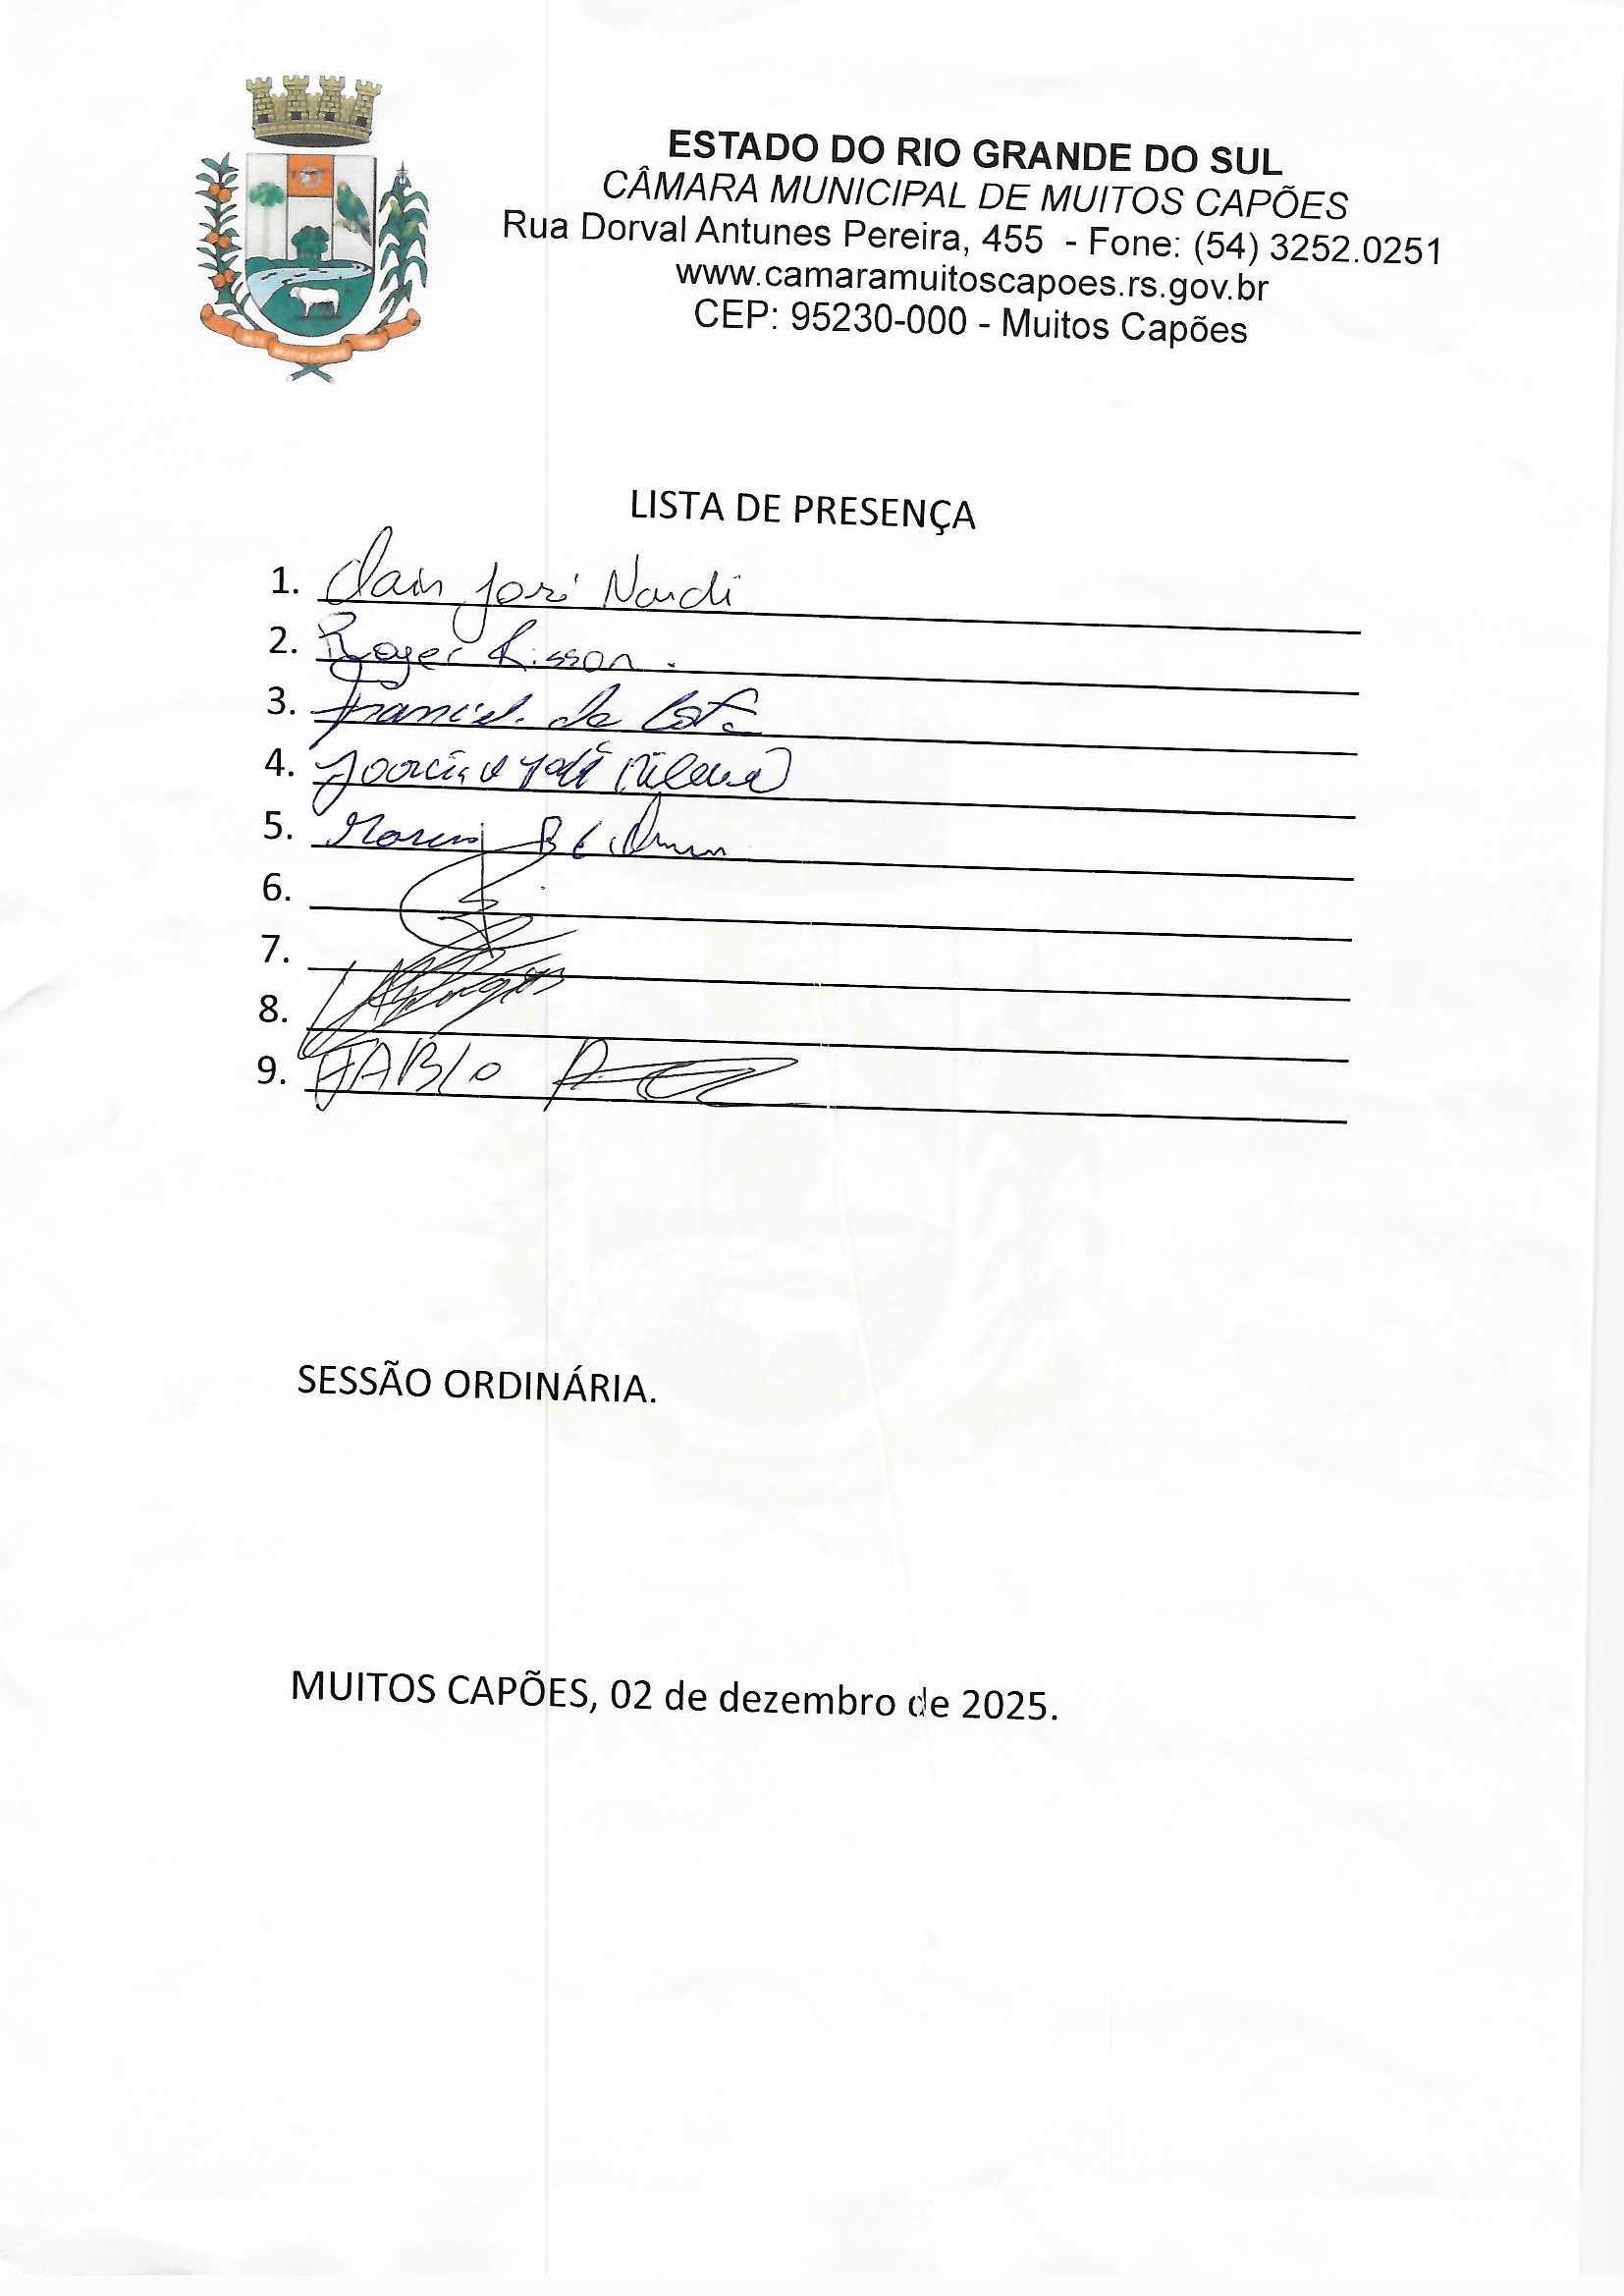 ESTADO DO RIO GRANDE DO SUL
CÂMARA MUNICIPAL DE MUITOS CAPÕES
Rua Dorval Antunes Pereira, 455 - Fone: (54) 3252.0251
www.camaramuitoscapoes.rs.gov.br
CEP: 95230-000 - Muitos Capões
LISTA DE PRESENÇA
1. José Nardi
2. Roger Risson.
3. da Costa
4. José
5.
6.
7.
8.
9. FABIO
SESSÃO ORDINÁRIA.
MUITOS CAPÕES, 02 de dezembro de 2025.